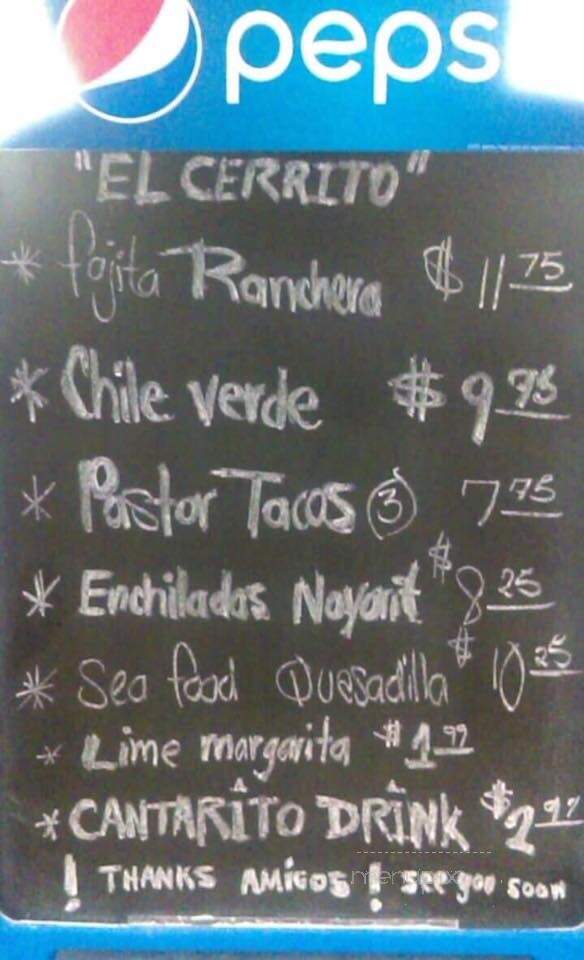 peps
"EL CERRITO"
* fajita Ranchera $ 11 75
* Chile verde $ 9 75
* Pastor Tacos 3 7 75
* Enchiladas Nayarit $ 8 25
* Sea food Quesadilla $ 10 25
* Lime margarita $ 1 99
* CANTARÎTO DRÎNK $ 2 99
! THANKS AMIGOS! see you soon